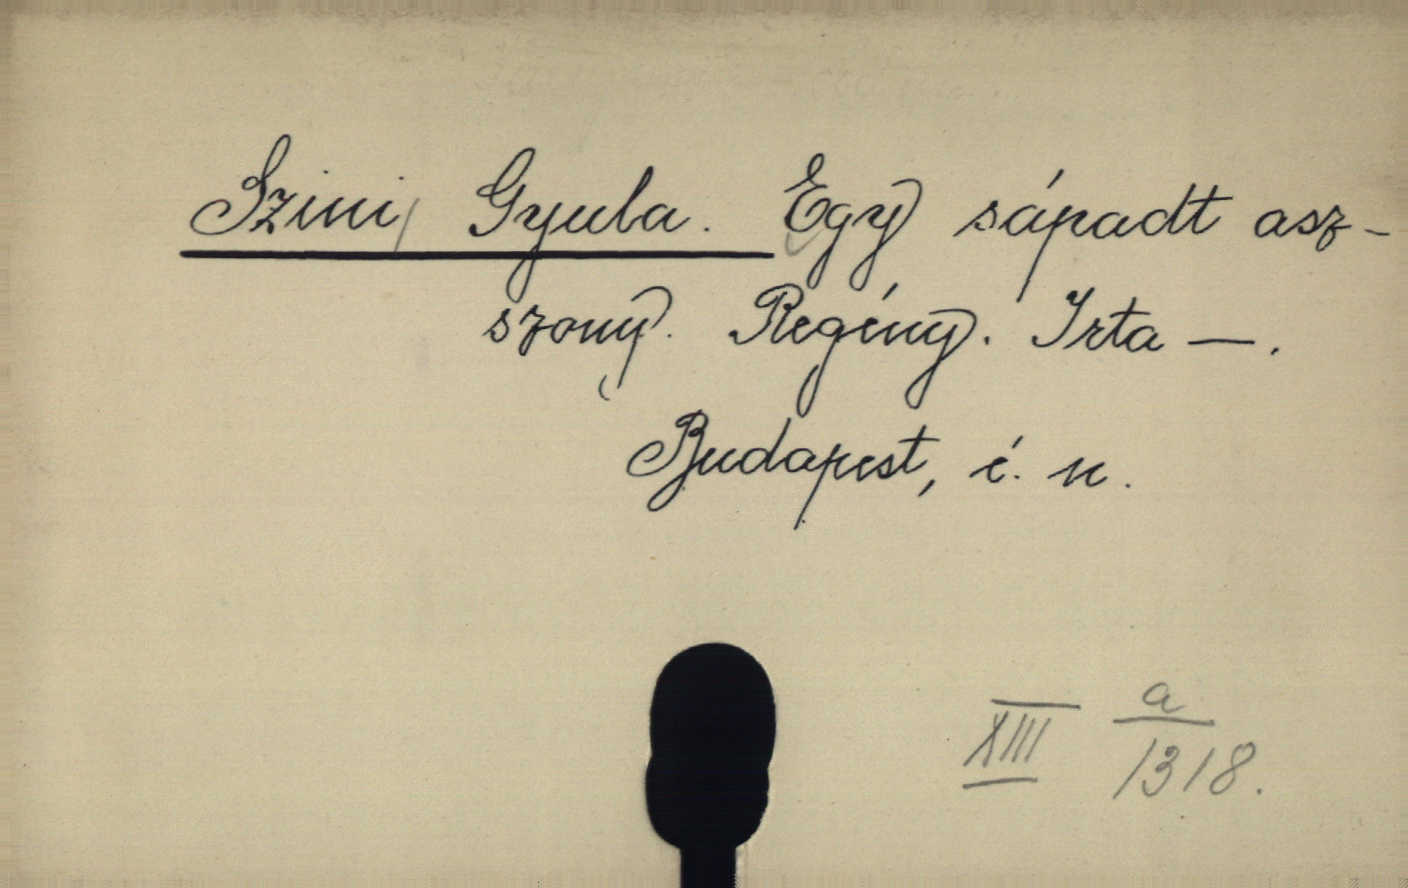 Szini, Gyula. Egy sápadt asz-
szony. Regény. Irta —.
Budapest, é. n.
XIII a/1318.